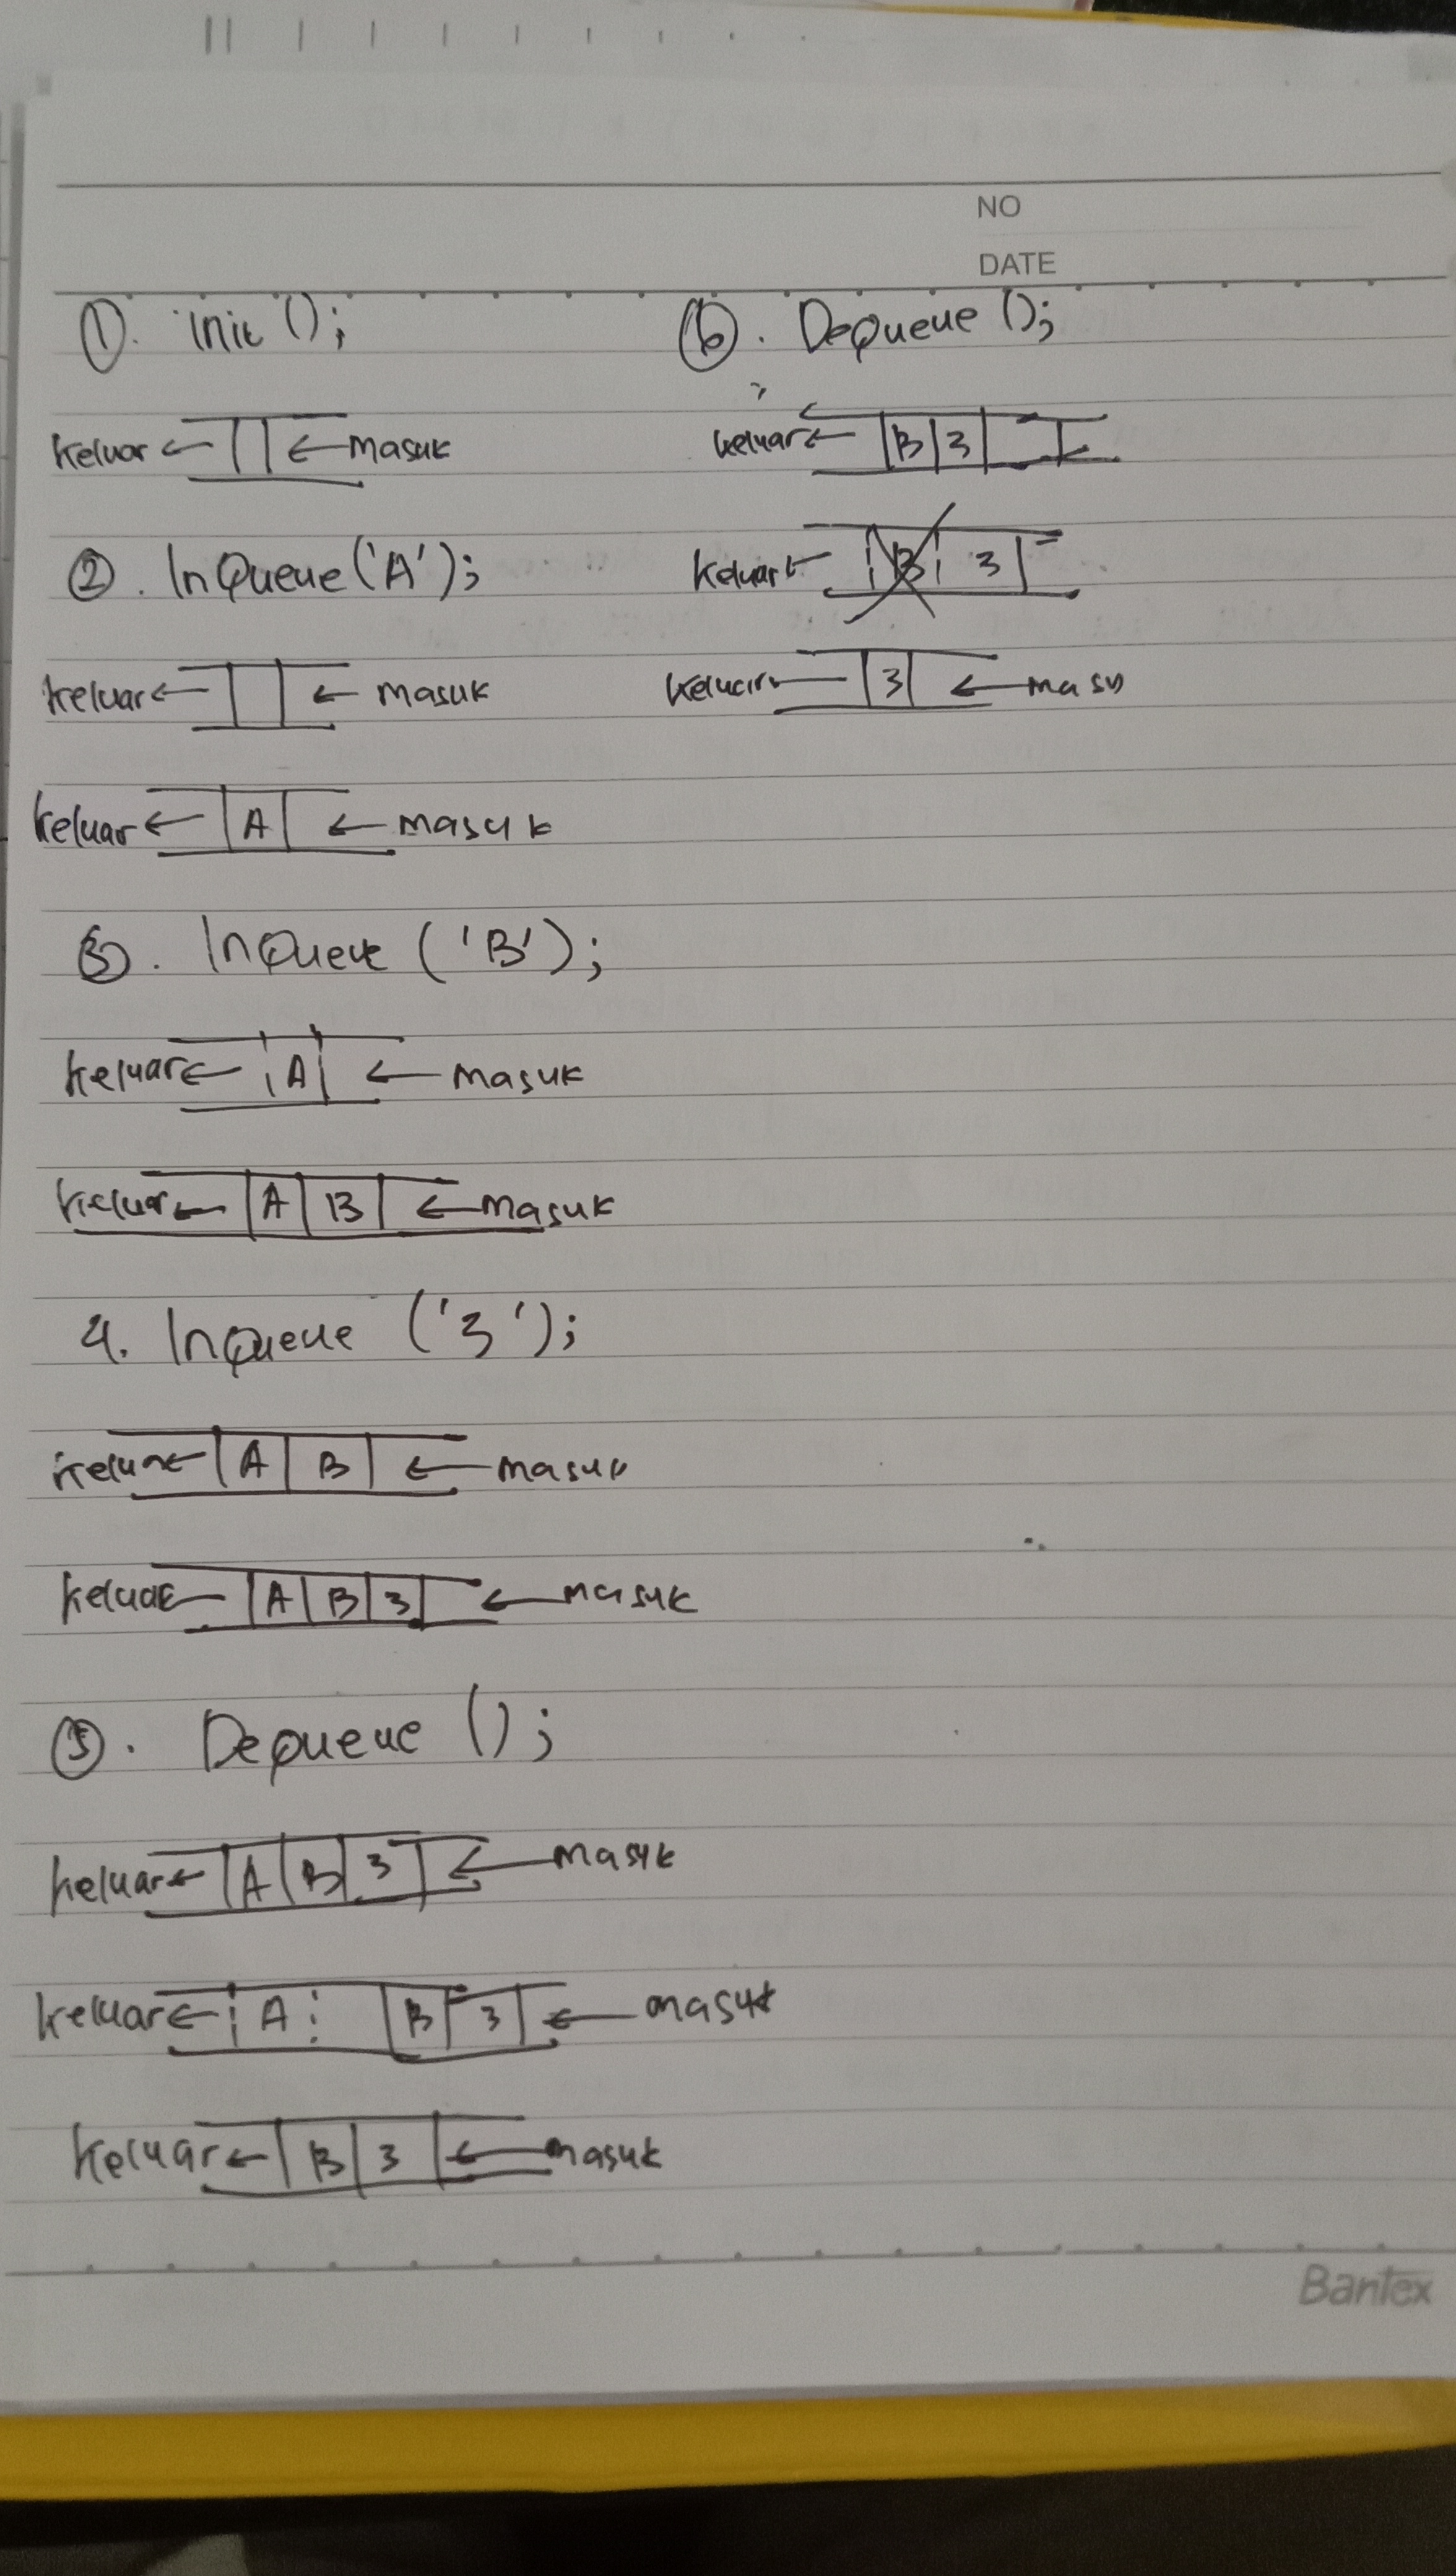 NO
DATE
1. Init ();
keluar ← ← masuk
2. InQueue ('A');
keluar ← ← masuk
keluar ← A ← masuk
3. InQueue ('B');
keluar ← A ← masuk
keluar ← A B ← masuk
4. InQueue ('3');
keluar ← A B ← masuk
keluar ← A B 3 ← masuk
5. Dequeue ();
keluar ← A B 3 ← masuk
keluar ← A B 3 ← masuk
keluar ← B 3 ← masuk
6. Dequeue ();
keluar ← B 3 ←
keluar ← B 3
keluar ← 3 ← masu
Bantex